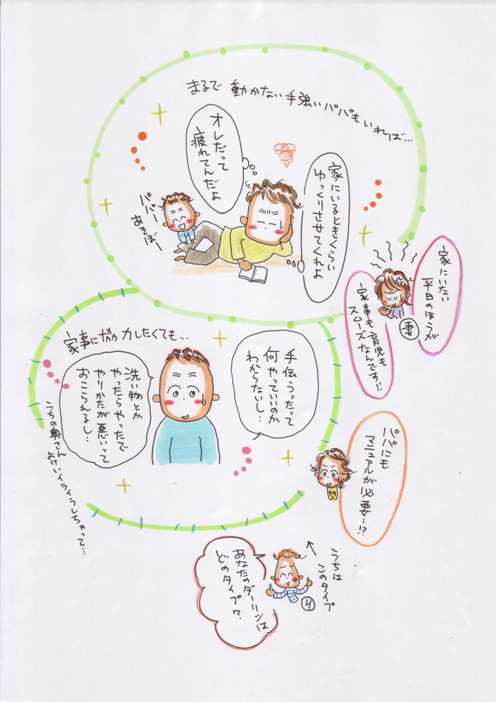 まるで 動かない 手強いパパもいれば…
オレだって
疲れてんだよ
家にいるときくらい
ゆっくりさせてくれよ
パパ、
あそぼー
家にいない
平日のほうが
家事も育児も
スムーズなんです!!
妻
家事に協力したくても…
手伝うったって
何やっていいのか
わからないし…
洗い物とか
やったらやったで
やりかたが悪いって
おこられるし…
うちの奥さん
よけいイライラしちゃって…
パパにも
マニュアルが
必要…!?
うちは
このタイプ
あなたのダーリンは
どのタイプ?